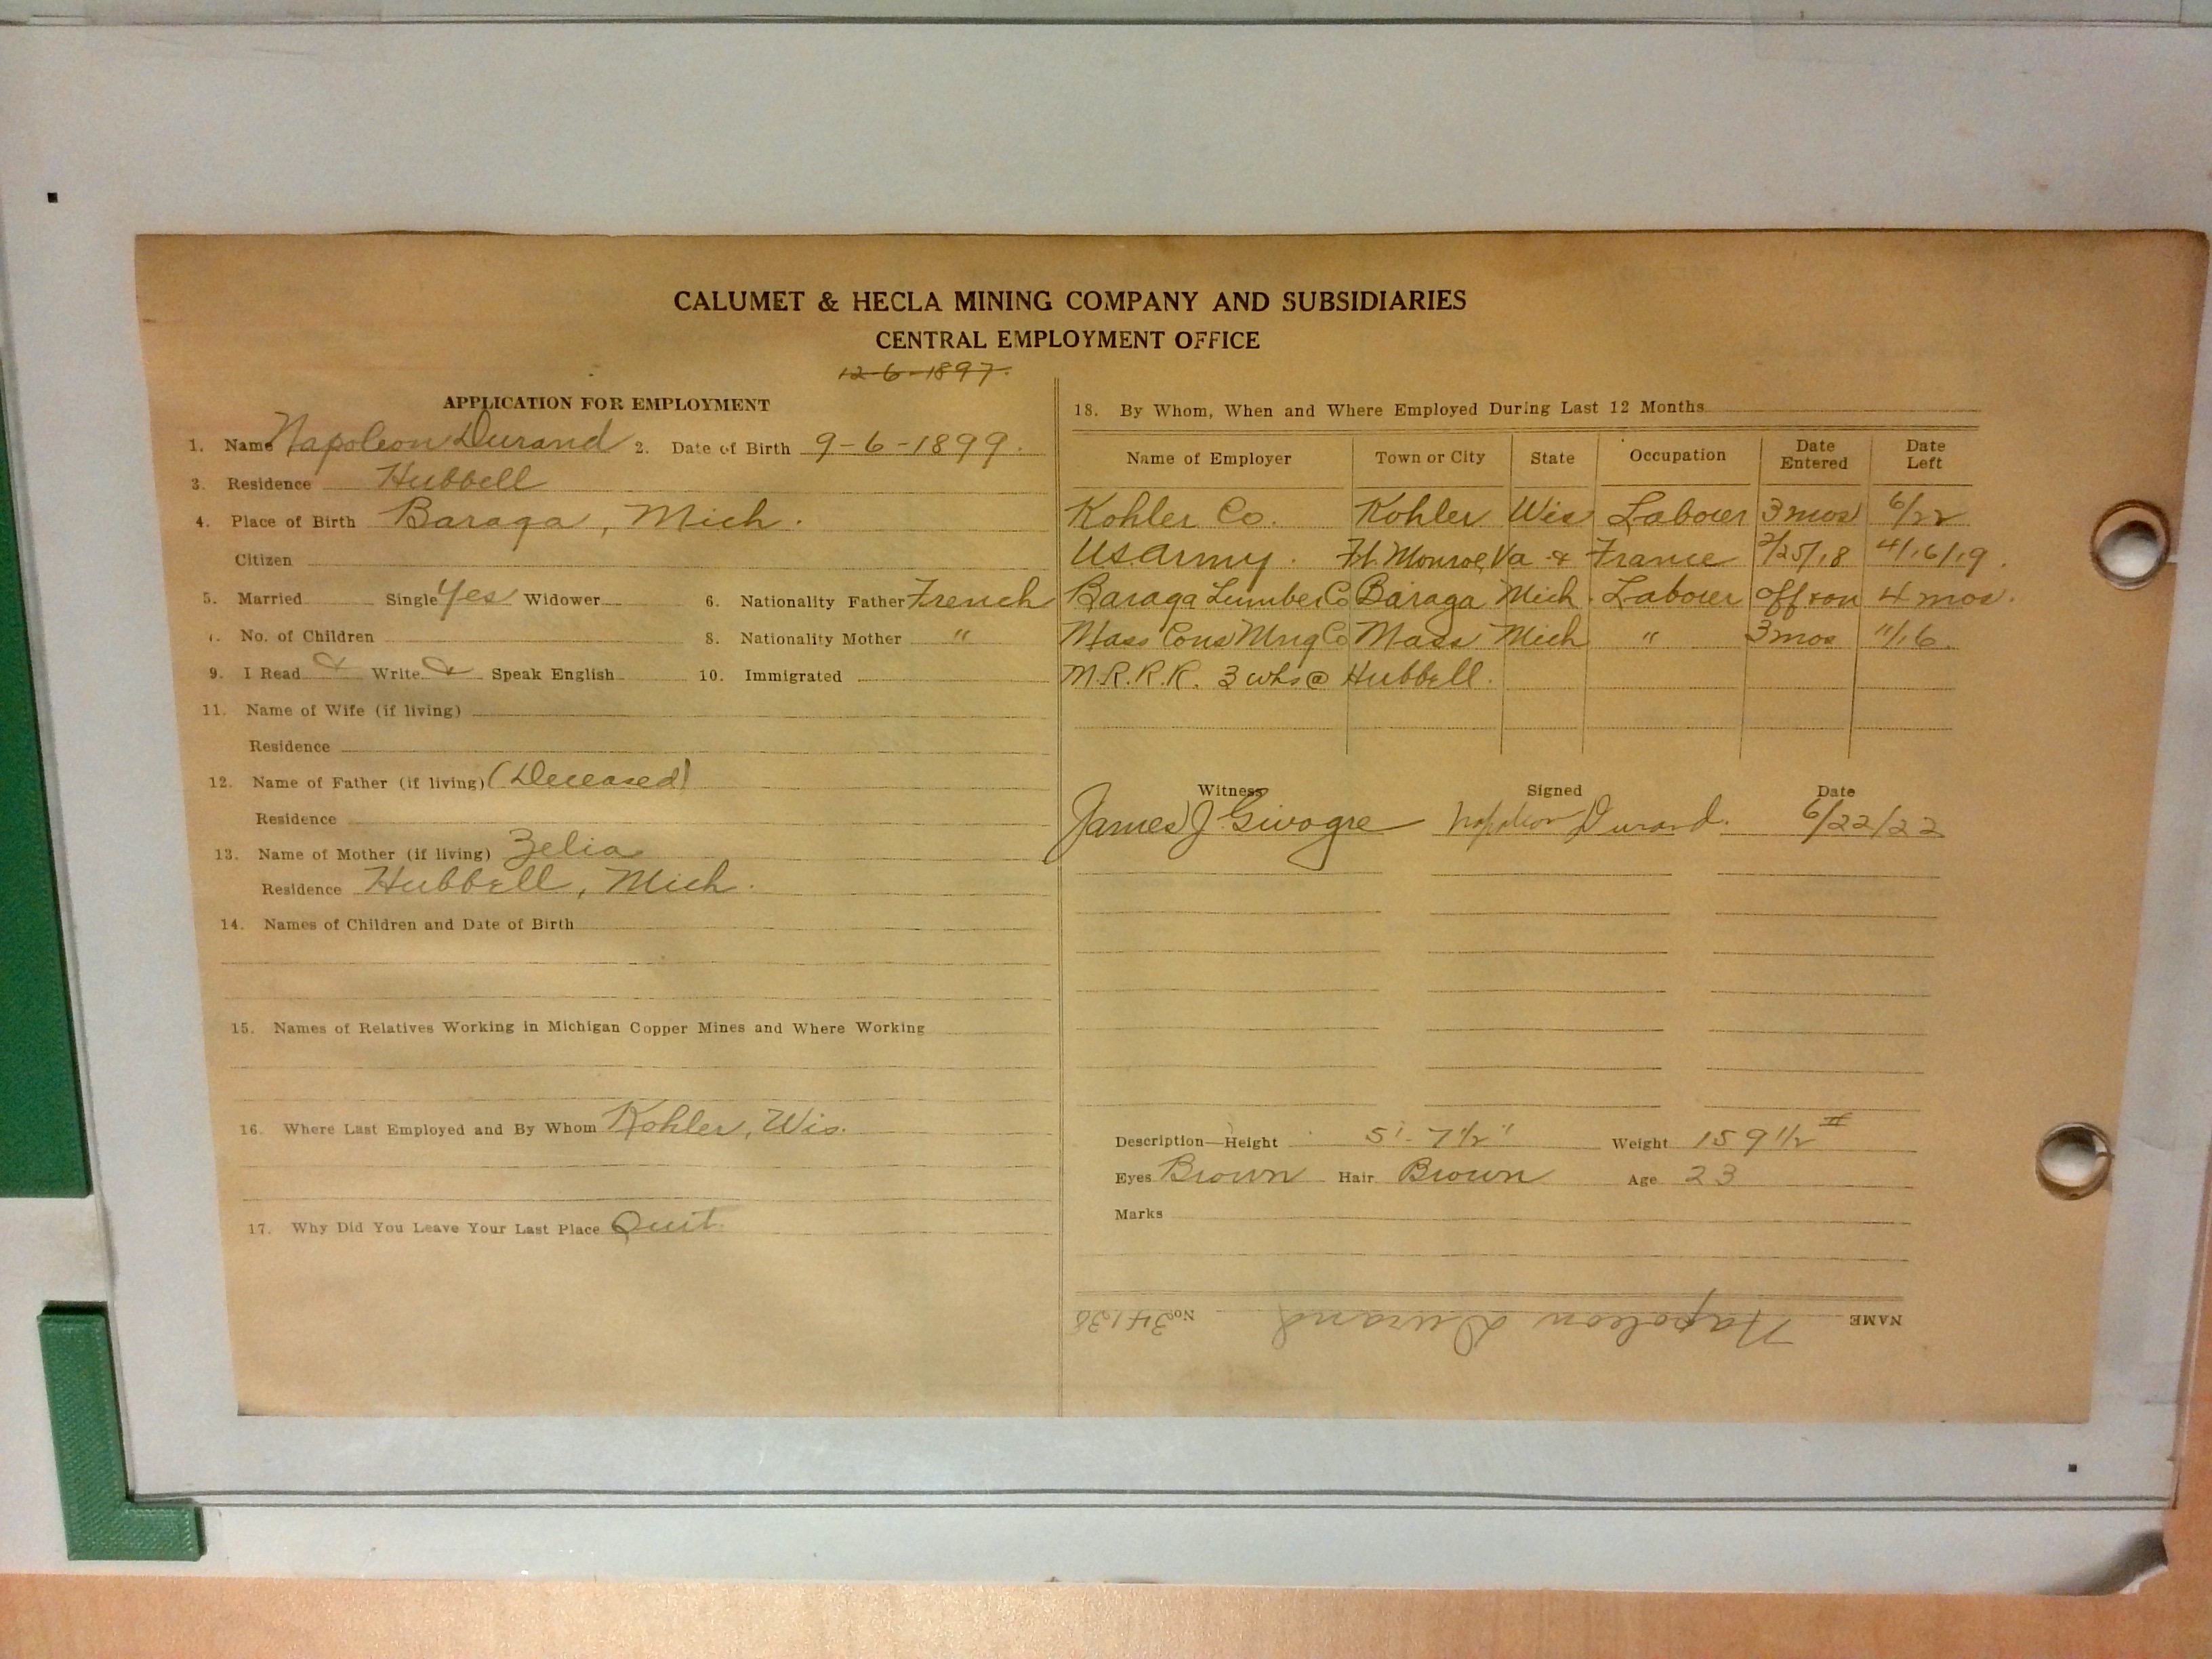 CALUMET & HECLA MINING COMPANY AND SUBSIDIARIES
CENTRAL EMPLOYMENT OFFICE
12-6-1897.
APPLICATION FOR EMPLOYMENT
1. Name Napoleon Durand 2. Date of Birth 9-6-1899.
3. Residence Hubbell
4. Place of Birth Baraga, Mich.
Citizen
5. Married Single Yes Widower 6. Nationality Father French
7. No. of Children 8. Nationality Mother "
9. I Read & Write & Speak English 10. Immigrated
11. Name of Wife (if living)
Residence
12. Name of Father (if living) (Deceased)
Residence
13. Name of Mother (if living) Zelia
Residence Hubbell, Mich.
14. Names of Children and Date of Birth
15. Names of Relatives Working in Michigan Copper Mines and Where Working
16. Where Last Employed and By Whom Kohler, Wis.
17. Why Did You Leave Your Last Place Quit
18. By Whom, When and Where Employed During Last 12 Months
Name of Employer Town or City State Occupation Date Entered Date Left
Kohler Co. Kohler Wis Labourer 3 mos 6/22
US Army. Ft. Monroe, Va & France 2/25/18 4/16/19.
Baraga Lumber Co Baraga Mich. Labourer off & on 4 mos.
Mass Cons Mng Co Mass Mich " 3 mos 11/16.
M.R.R.R. 3 wks @ Hubbell.
Witness Signed Date
James J. Givogre Napoleon Durand. 6/22/22
Description—Height 5'-7 1/2" Weight 159 1/2 #
Eyes Brown Hair Brown Age 23
Marks
NAME Napoleon Durand No. 34138